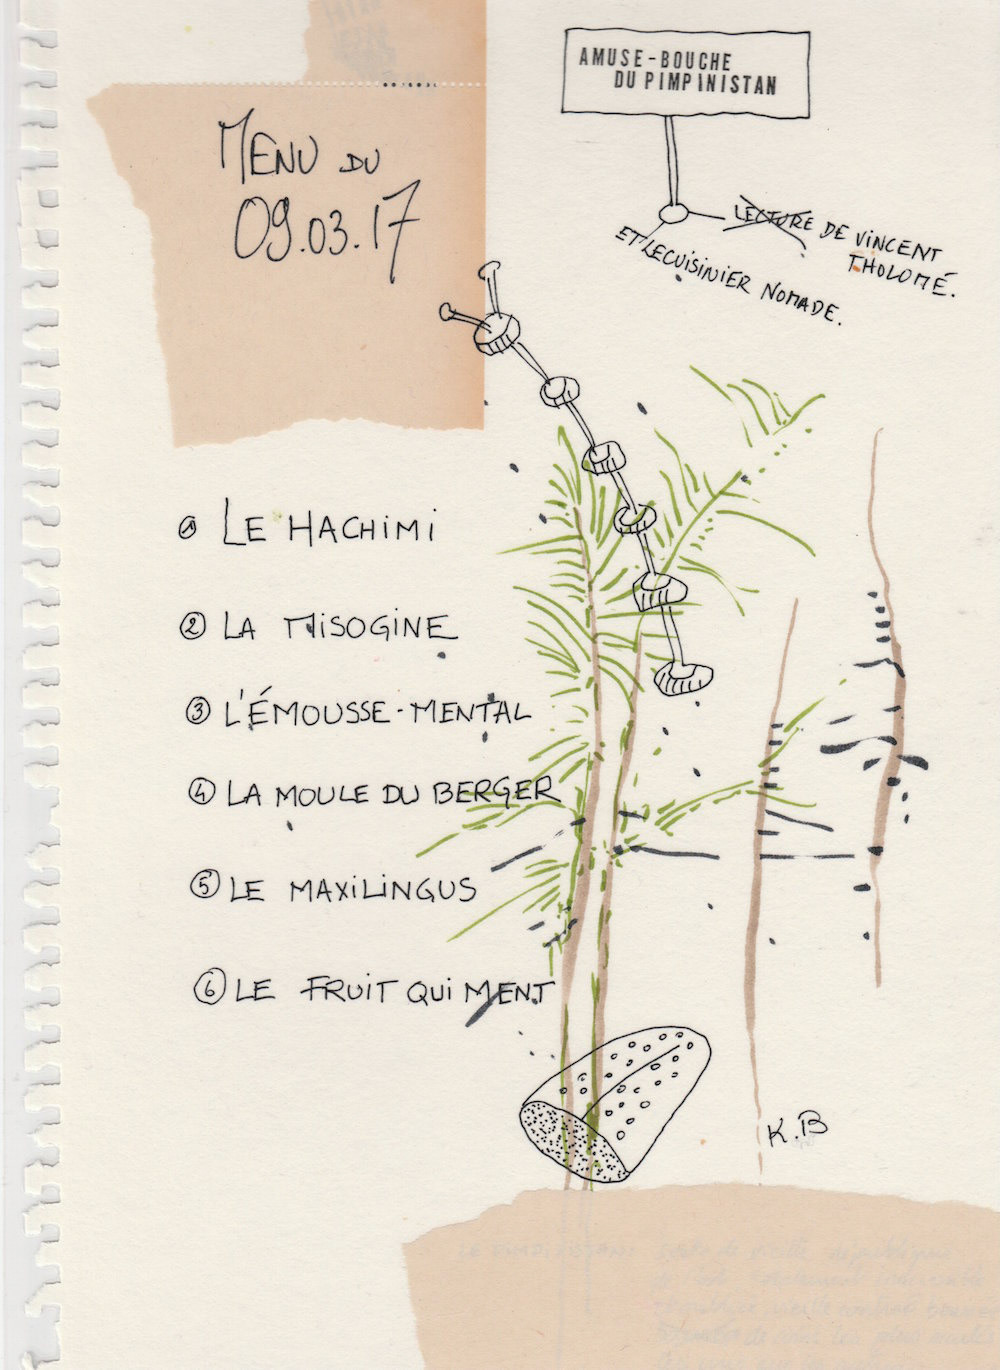 MENU DU
09.03.17
AMUSE-BOUCHE
DU PIMPINISTAN
LECTURE DE VINCENT
THOLOMÉ.
ET LE CUISINIER NOMADE.
1 LE HACHIMI
2 LA MISOGINE
3 L'ÉMOUSSE-MENTAL
4 LA MOULE DU BERGER
5 LE MAXILINGUS
6 LE FRUIT QUI MENT
K.B